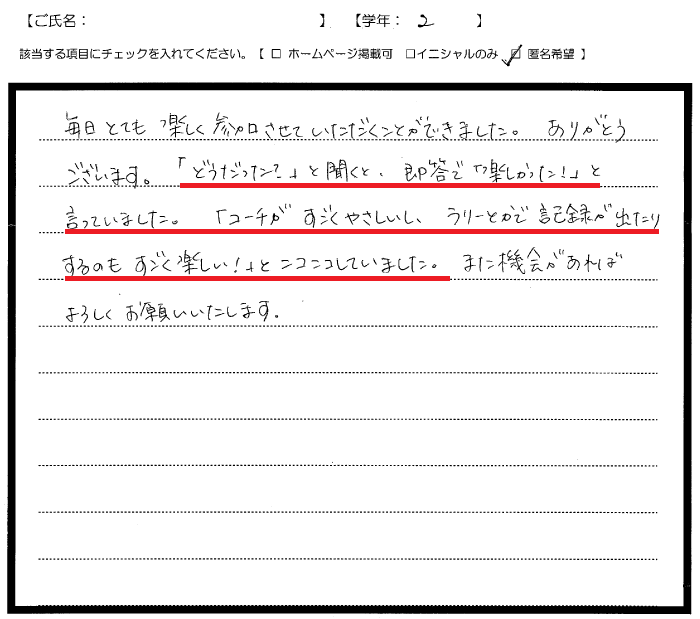 【ご氏名： 】 【学年： 2 】
該当する項目にチェックを入れてください。【 □ ホームページ掲載可 □イニシャルのみ ☑ 匿名希望 】
毎日とても楽しく参加させていただくことができました。 ありがとう
ございます。「どうだった?」と聞くと、即答で「楽しかった!」と
言っていました。「コーチが すごくやさしいし、ラリーとかで記録が出たり
するのも すごく楽しい!」とニコニコしていました。 また機会があれば
よろしくお願いいたします。